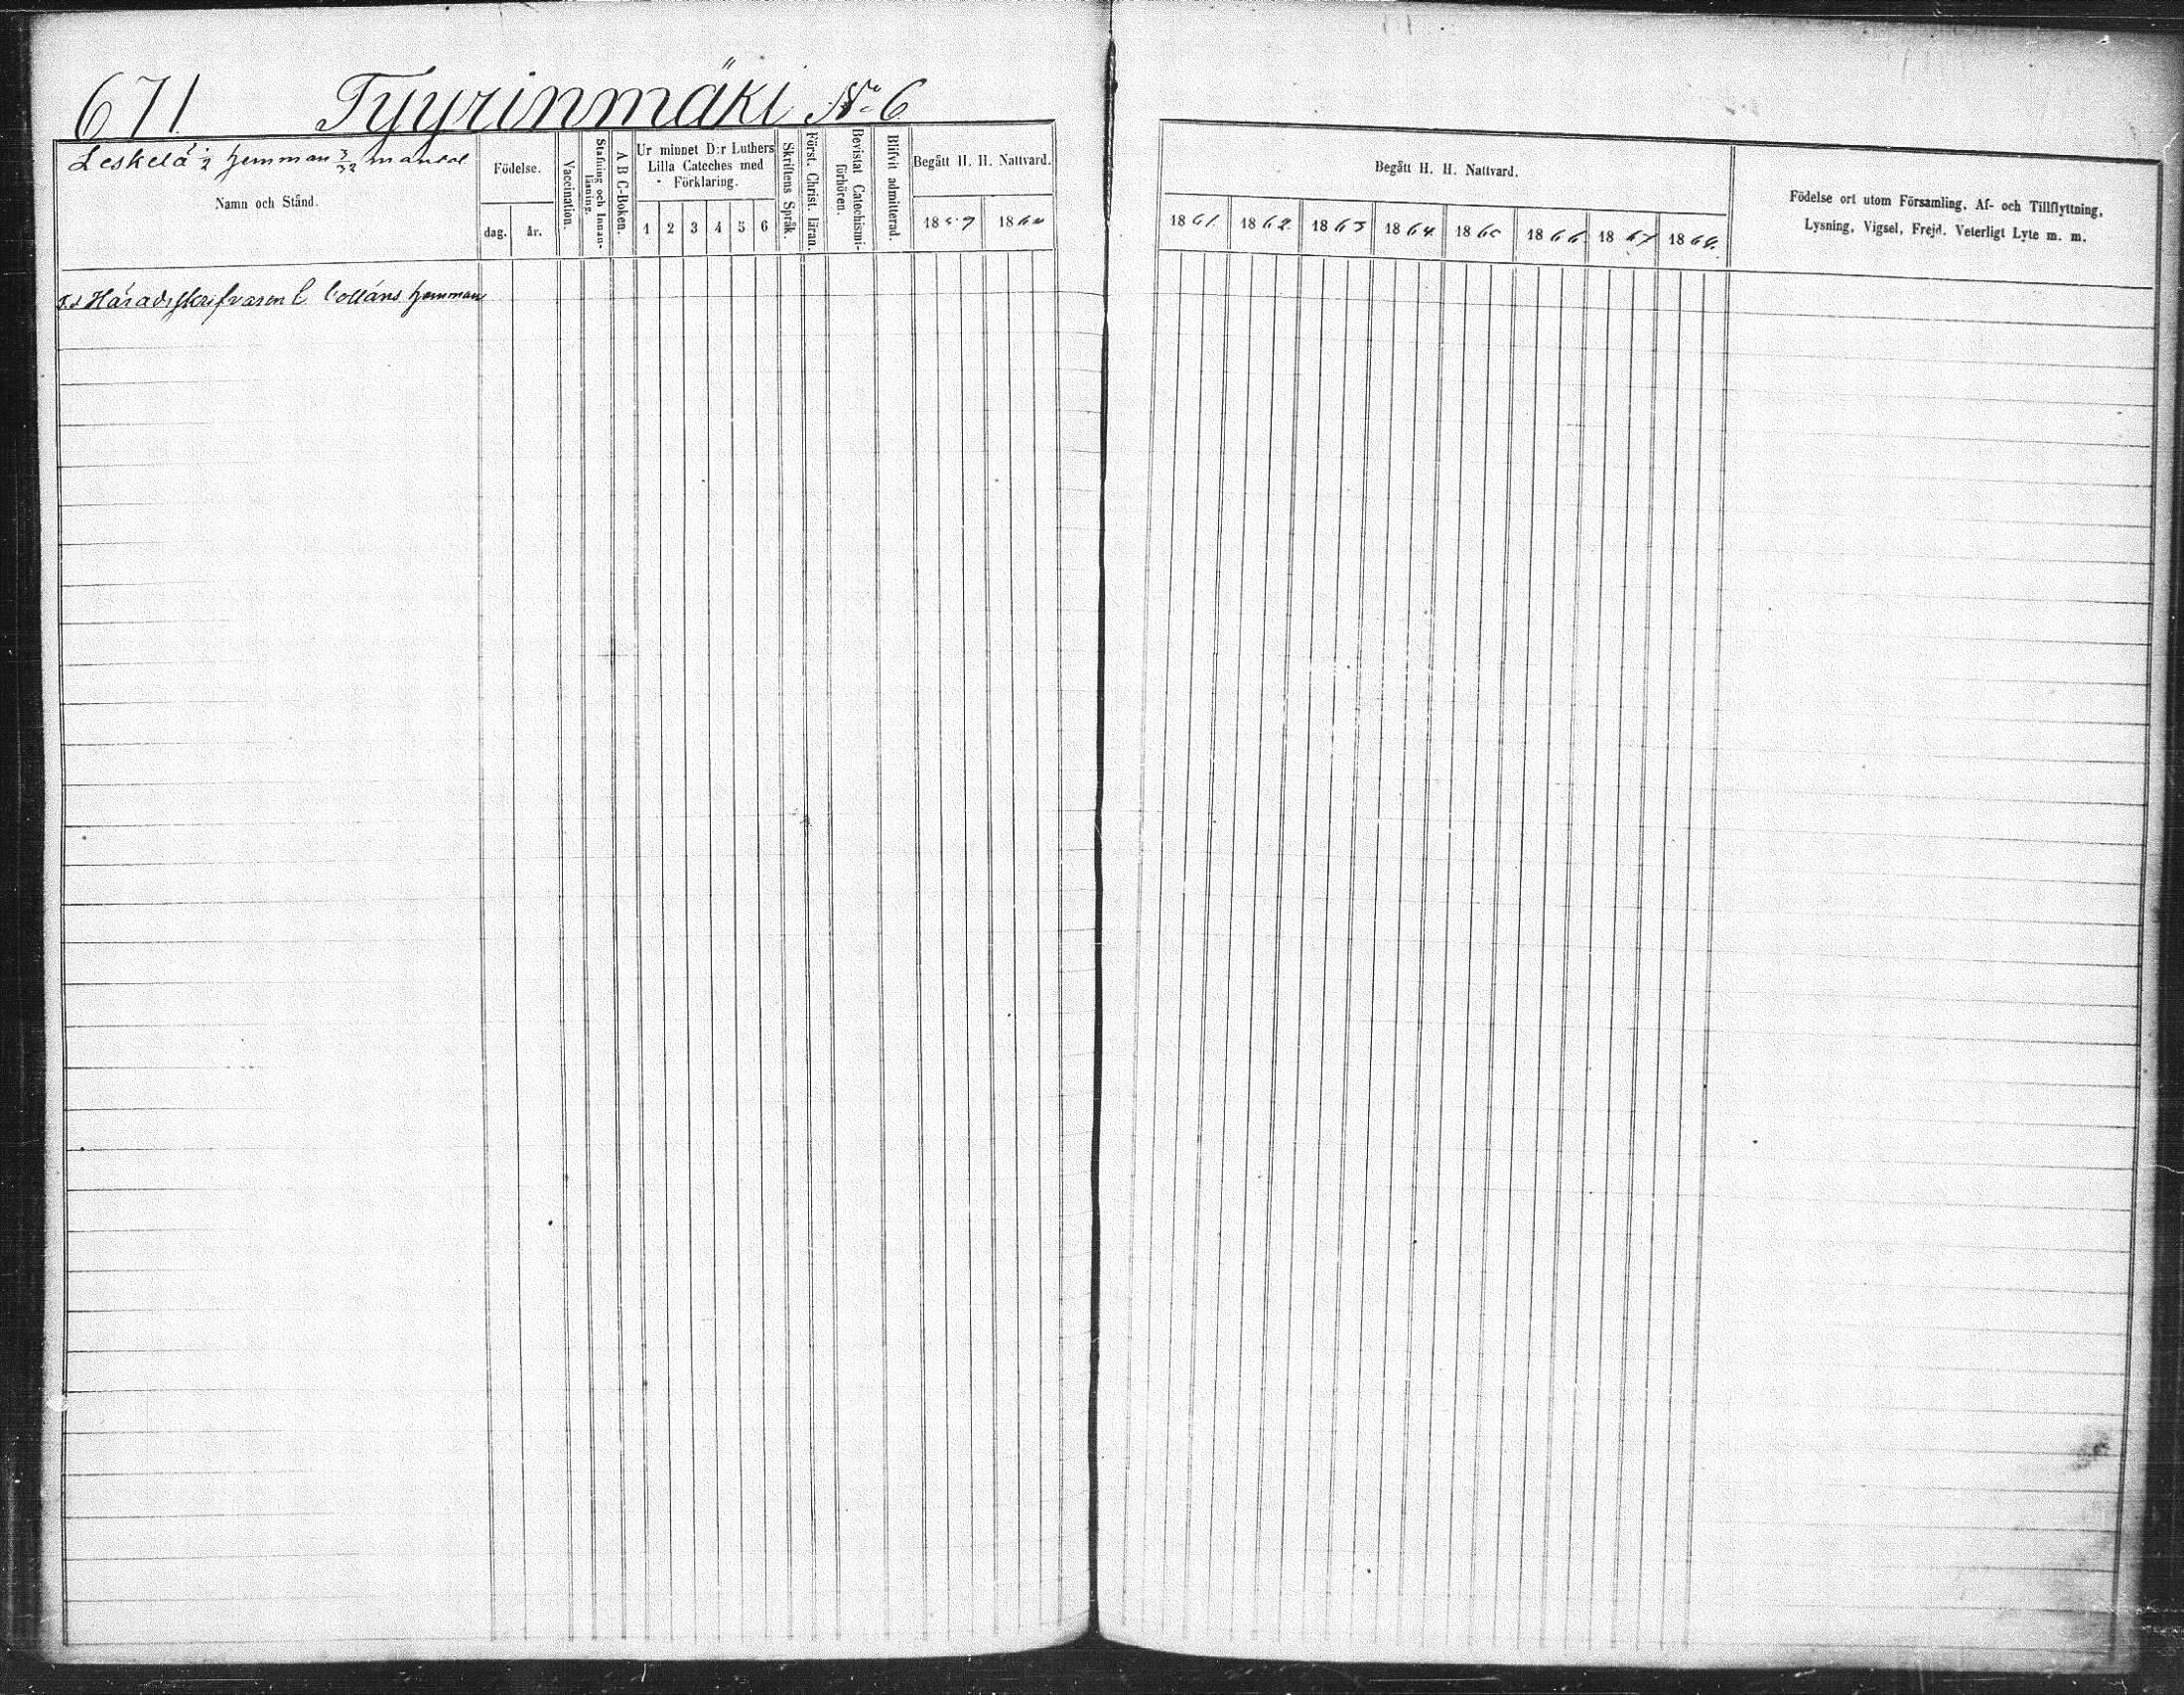 671 Tyyrinmäki No 6
Leskelä 1/2 hemman 3/32 mantal
Namn och Stånd.
Födelse.
dag. år.
Vaccination.
Stafning och Innanläsning.
A B C-Boken.
Ur minnet D:r Luthers
Lilla Cateches med
Förklaring.
1 2 3 4 5 6
Skriftens Språk.
Först. Christ. läran.
Bevistat Catechismi-
förhören.
Blifvit admitterad.
Begått H. H. Nattvard.
1859 1860
Häradsskrifvaren C Colláns hemman
Begått H. H. Nattvard.
1861. 1862. 1863 1864. 1865 1866. 1867 1868.
Födelse ort utom Församling, Af- och Tillflyttning,
Lysning, Vigsel, Frejd. Veterligt Lyte m. m.